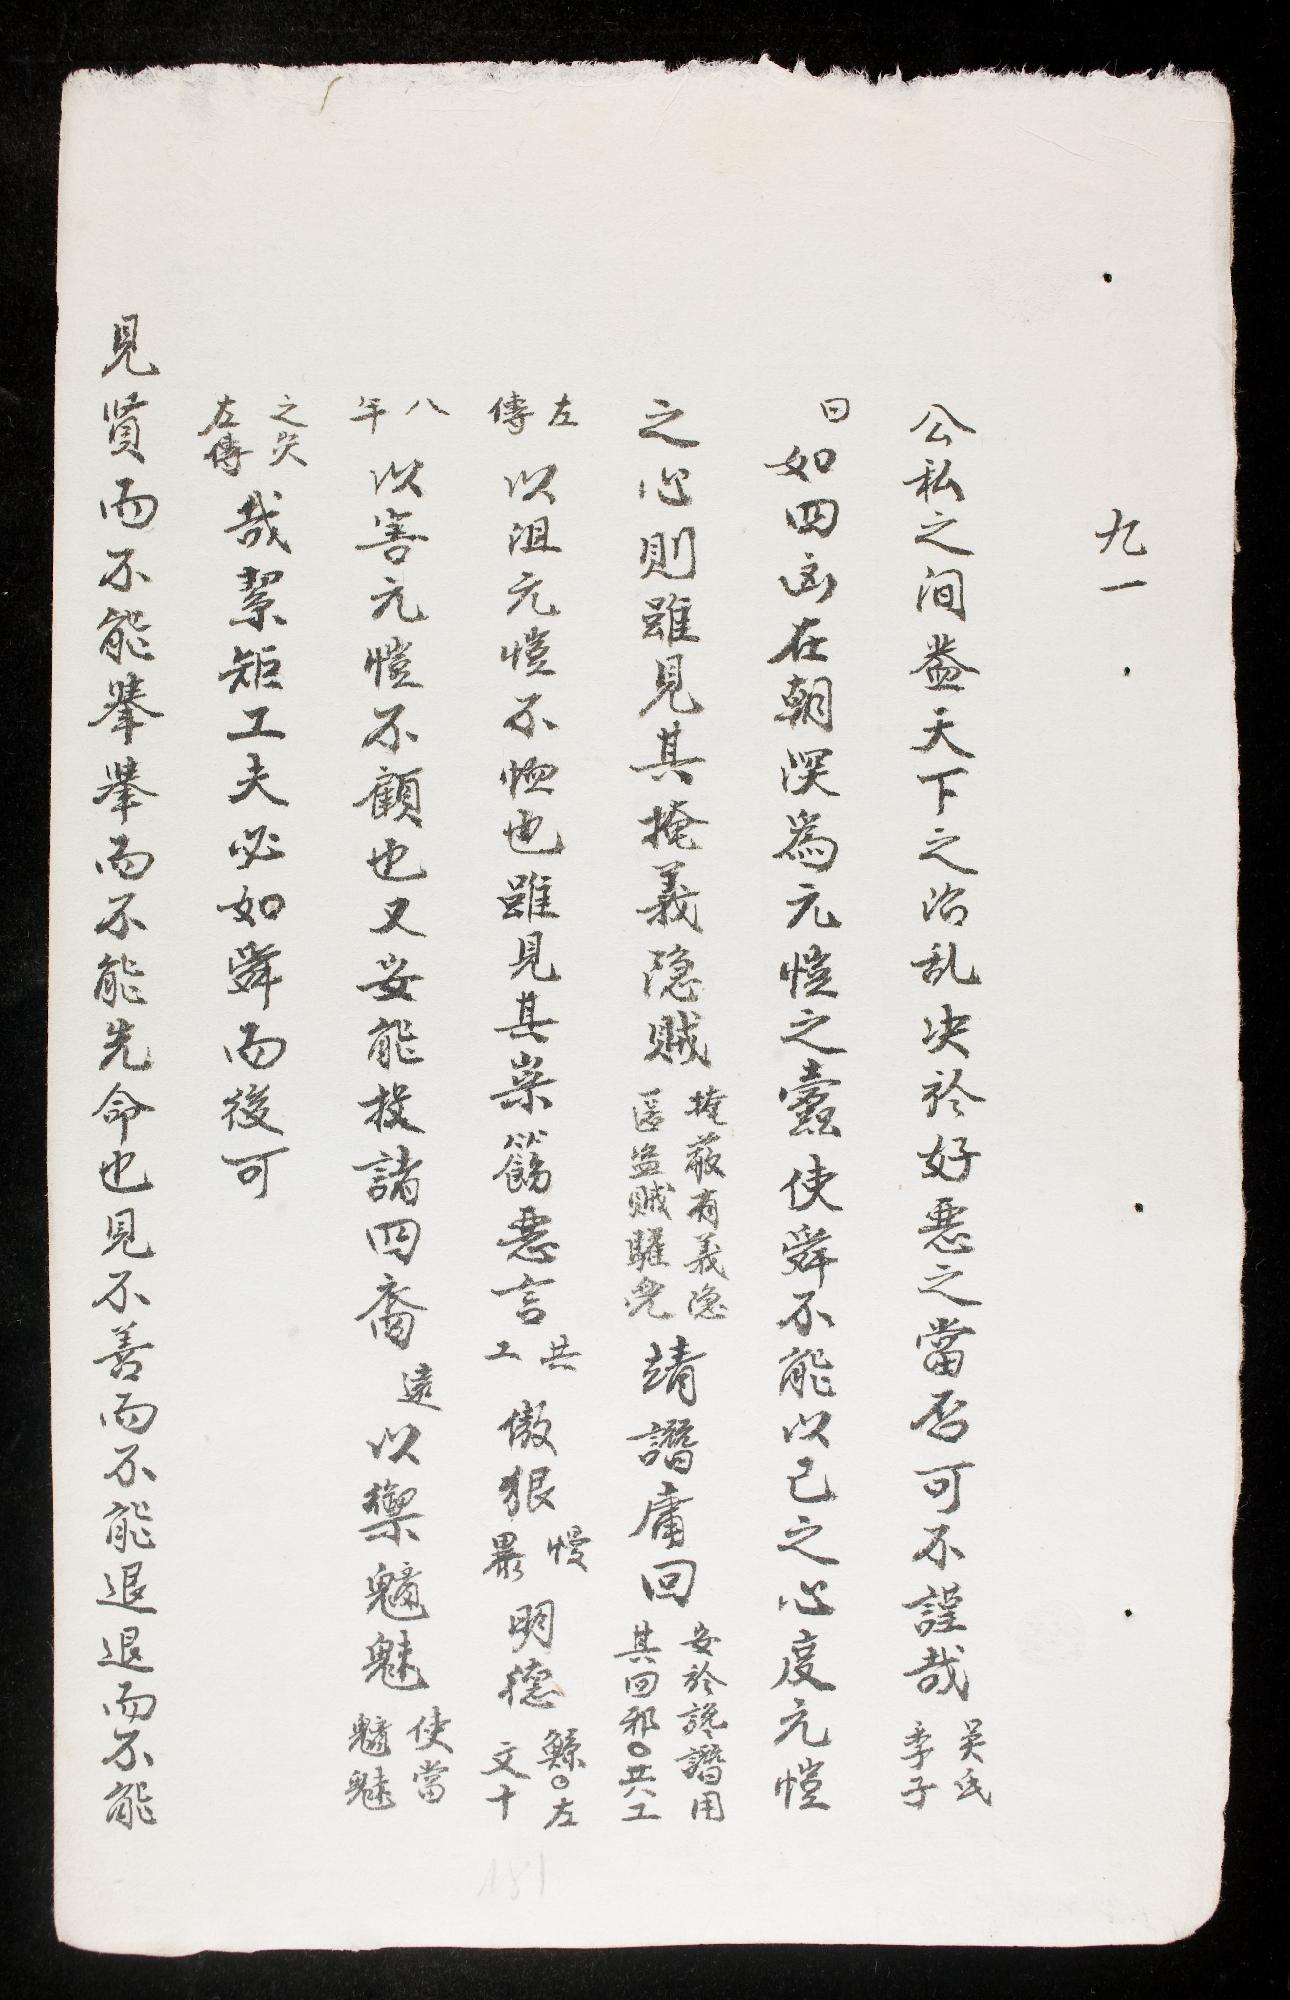 九一
公私之间盖天下之治乱决於好惡之當否可不謹哉吴氏季子
曰如四凶在朝深為元愷之蠹使舜不能以己之心度元愷
之心則雖見其掩義隐賊掩蔽有義隐匿盗賊驩兜靖譖庸回安於讒譖用其回邪○共工
左傳以沮元愷不恤也雖見其崇飾惡言共工傲狠慢暴明德鯀○左文十
八年以害元愷不顧也又安能投諸四裔遠以禦魑魅使當魑魅
之災左傳哉絜矩工夫必如舜而後可
見賢而不能擧擧而不能先命也見不善而不能退退而不能
181